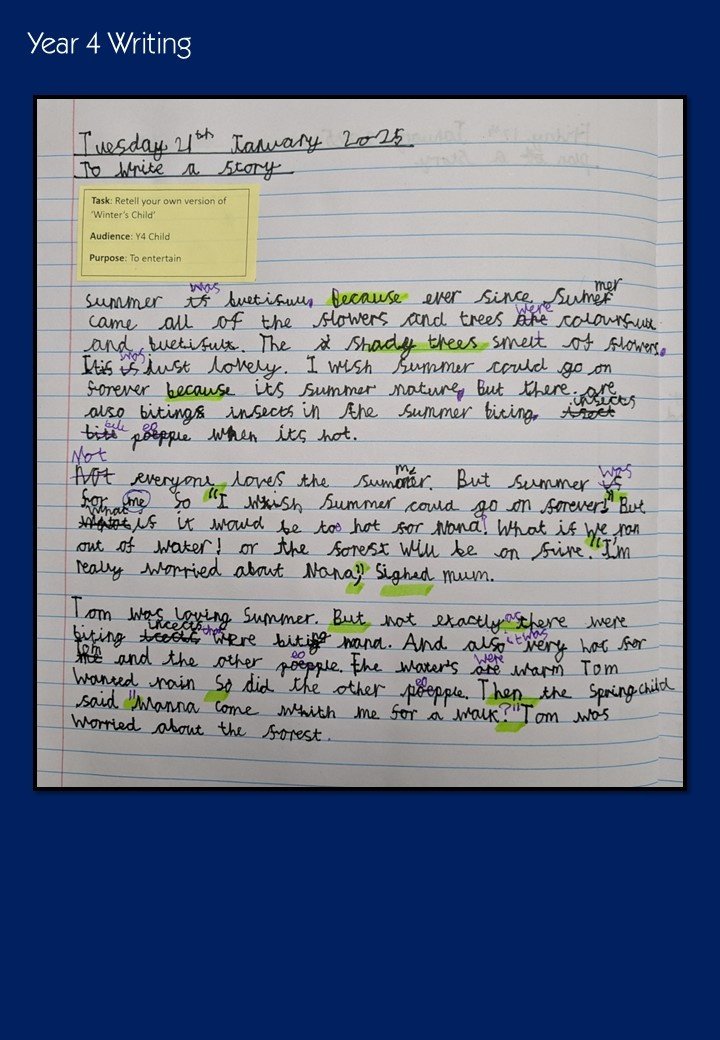 Year 4 Writing
Tuesday 21th January 2025
To write a story
Task: Retell your own version of
'Winter's Child'
Audience: Y4 Child
Purpose: To entertain
mer
was
summer is buetifuu, because ever since Sumer
were
came all of the flowers and trees are colourfull
and buetifull. The shady trees smelt of flowers.
was
Itis is Just lovely. I wish summer could go on
forever because its summer nature, But there are
insects
also bitings insects in the summer biting.
bite eo
poepple when its hot.
Not
me was
Not everyone loves the sumer. But summer is
for me So "I whish summer could go on forever!" But
what
is it would be to hot for Nana! What if we ran
out of water! or the forest will be on fire. "I'm
really worried about Nana," Sighed mum.
as
Tom was loving Summer. But not exactly there were
incects that it was
biting were biting nana. And also very hot for
Tom eo were
me and the other poepple. the waters are warm Tom
eo
Wanted rain So did the other poepple. Then the Springchild
said "Wanna come whith me for a walk?" Tom was
worried about the forest.